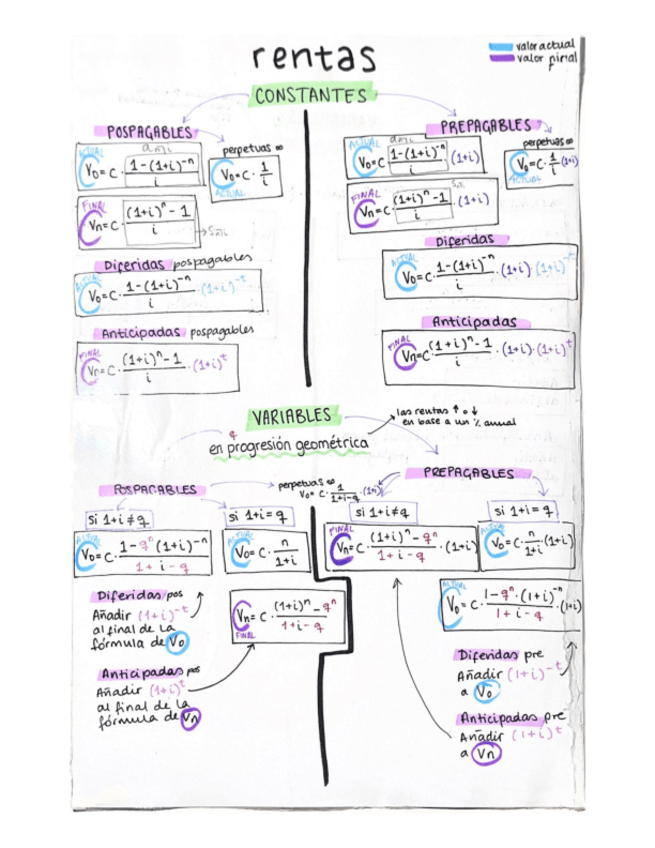 rentas
valor actual
valor final
CONSTANTES
POSPAGABLES
ACTUAL
a n¬i
V₀ = C · 1-(1+i)⁻ⁿ / i
perpetuas ∞
V₀ = C · 1/i
ACTUAL
FINAL
Vn = C · (1+i)ⁿ - 1 / i
S n¬i
Diferidas pospagables
ACTUAL
V₀ = C · 1-(1+i)⁻ⁿ / i · (1+i)⁻ᵗ
Anticipadas pospagables
FINAL
Vn = C · (1+i)ⁿ - 1 / i · (1+i)ᵗ
PREPAGABLES
ACTUAL
a n¬i
V₀ = C · 1-(1+i)⁻ⁿ / i · (1+i)
perpetuas ∞
V₀ = C · 1/i (1+i)
ACTUAL
FINAL
S n¬i
Vn = C · (1+i)ⁿ - 1 / i · (1+i)
Diferidas
ACTUAL
V₀ = C · 1-(1+i)⁻ⁿ / i · (1+i) · (1+i)⁻ᵗ
Anticipadas
FINAL
Vn = C · (1+i)ⁿ - 1 / i · (1+i) · (1+i)ᵗ
VARIABLES
las rentas ↑ o ↓
en base a un % anual
q
en progresión geométrica
POSPAGABLES
perpetuas ∞
V₀ = C · 1 / 1+i-q · (1+i)
PREPAGABLES
si 1+i≠q
ACTUAL
V₀ = C · 1-qⁿ (1+i)⁻ⁿ / 1+i-q
si 1+i=q
ACTUAL
V₀ = C · n / 1+i
Diferidas pos
Añadir (1+i)⁻ᵗ
al final de la
fórmula de V₀
Vn = C · (1+i)ⁿ - qⁿ / 1+i-q
FINAL
Anticipadas pos
Añadir (1+i)ᵗ
al final de la
fórmula de Vn
si 1+i≠q
FINAL
Vn = C · (1+i)ⁿ - qⁿ / 1+i-q · (1+i)
si 1+i=q
ACTUAL
V₀ = C · n / 1+i · (1+i)
ACTUAL
V₀ = C · 1-qⁿ · (1+i)⁻ⁿ / 1+i-q · (1+i)
Diferidas pre
Añadir (1+i)⁻ᵗ
a V₀
Anticipadas pre
Añadir (1+i)ᵗ
a Vn